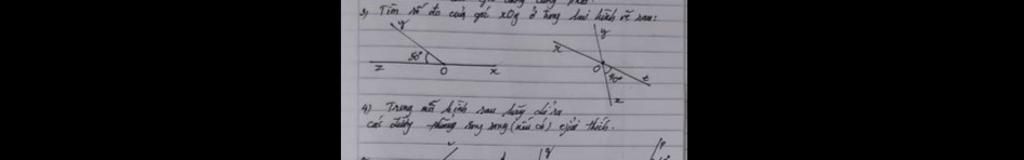 3) Tìm số đo của góc xOy ở từng hình vẽ sau:
y
x
y
50°
z
O
x
O
t
z
4) Trong mỗi hình sau hãy chỉ ra
các đường thẳng song song (nếu có) giải thích.